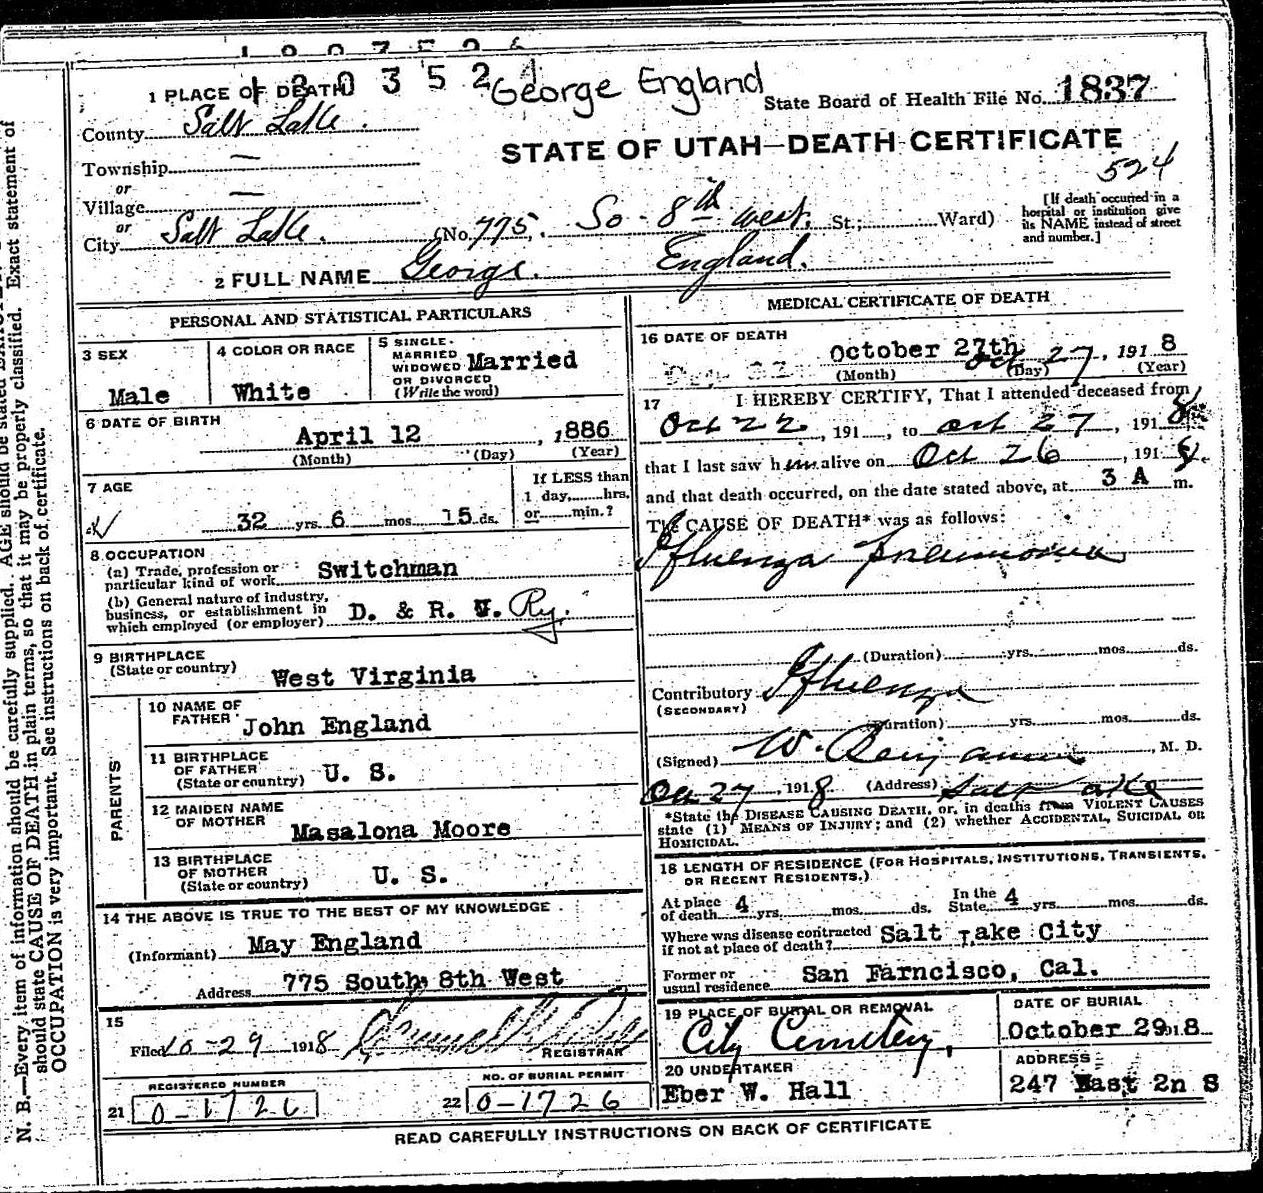 1 2 0 3 5 2 4
George England
1 PLACE OF DEATH
State Board of Health File No. 1837
County Salt Lake.
STATE OF UTAH—DEATH CERTIFICATE
Township —
524
or
Village —
or
City Salt Lake. (No. 775, So - 8th west. St.; Ward)
[If death occurred in a
hospital or institution give
its NAME instead of street
and number.]
2 FULL NAME George. England.
PERSONAL AND STATISTICAL PARTICULARS
3 SEX
Male
4 COLOR OR RACE
White
5 SINGLE.
MARRIED
WIDOWED
OR DIVORCED
(Write the word)
Married
6 DATE OF BIRTH
April 12, 1886
(Month) (Day) (Year)
7 AGE
32 yrs. 6 mos. 15 ds.
If LESS than
1 day, hrs.
or min.?
8 OCCUPATION
(a) Trade, profession or
particular kind of work Switchman
(b) General nature of industry,
business, or establishment in
which employed (or employer) D. & R. G. Ry.
9 BIRTHPLACE
(State or country) West Virginia
PARENTS
10 NAME OF
FATHER John England
11 BIRTHPLACE
OF FATHER
(State or country) U. S.
12 MAIDEN NAME
OF MOTHER
Masalona Moore
13 BIRTHPLACE
OF MOTHER
(State or country) U. S.
14 THE ABOVE IS TRUE TO THE BEST OF MY KNOWLEDGE
(Informant) May England
Address 775 South 8th West
15
Filed 10-29 1918
REGISTRAR
REGISTERED NUMBER
21 0-1726
NO. OF BURIAL PERMIT
22 0-1726
MEDICAL CERTIFICATE OF DEATH
16 DATE OF DEATH
October 27th
Oct 27, 1918
(Month) (Day) (Year)
17 I HEREBY CERTIFY, That I attended deceased from
Oct 22, 191 , to Oct 27, 1918
that I last saw him alive on Oct 26, 1918.
and that death occurred, on the date stated above, at 3 A m.
The CAUSE OF DEATH* was as follows:
Ifluenza Pneumonia
(Duration) yrs. mos. ds.
Contributory Ifluenza
(SECONDARY)
(Duration) yrs. mos. ds.
(Signed) W. Benjamin, M. D.
Oct 27, 1918 (Address) Salt Lake
*State the DISEASE CAUSING DEATH, or, in deaths from VIOLENT CAUSES
state (1) MEANS OF INJURY; and (2) whether ACCIDENTAL, SUICIDAL OR
HOMICIDAL.
18 LENGTH OF RESIDENCE (FOR HOSPITALS, INSTITUTIONS, TRANSIENTS,
OR RECENT RESIDENTS.)
At place
of death 4 yrs. mos. ds.
In the
State 4 yrs. mos. ds.
Where was disease contracted
if not at place of death? Salt Lake City
Former or
usual residence San Farncisco, Cal.
19 PLACE OF BURIAL OR REMOVAL
City Cemetery,
DATE OF BURIAL
October 29 1918
20 UNDERTAKER
Eber W. Hall
ADDRESS
247 East 2n S
READ CAREFULLY INSTRUCTIONS ON BACK OF CERTIFICATE
N. B.—Every item of information should be carefully supplied. AGE should be stated Exact statement of
should state CAUSE OF DEATH in plain terms, so that it may be properly classified.
OCCUPATION is very important. See instructions on back of certificate.